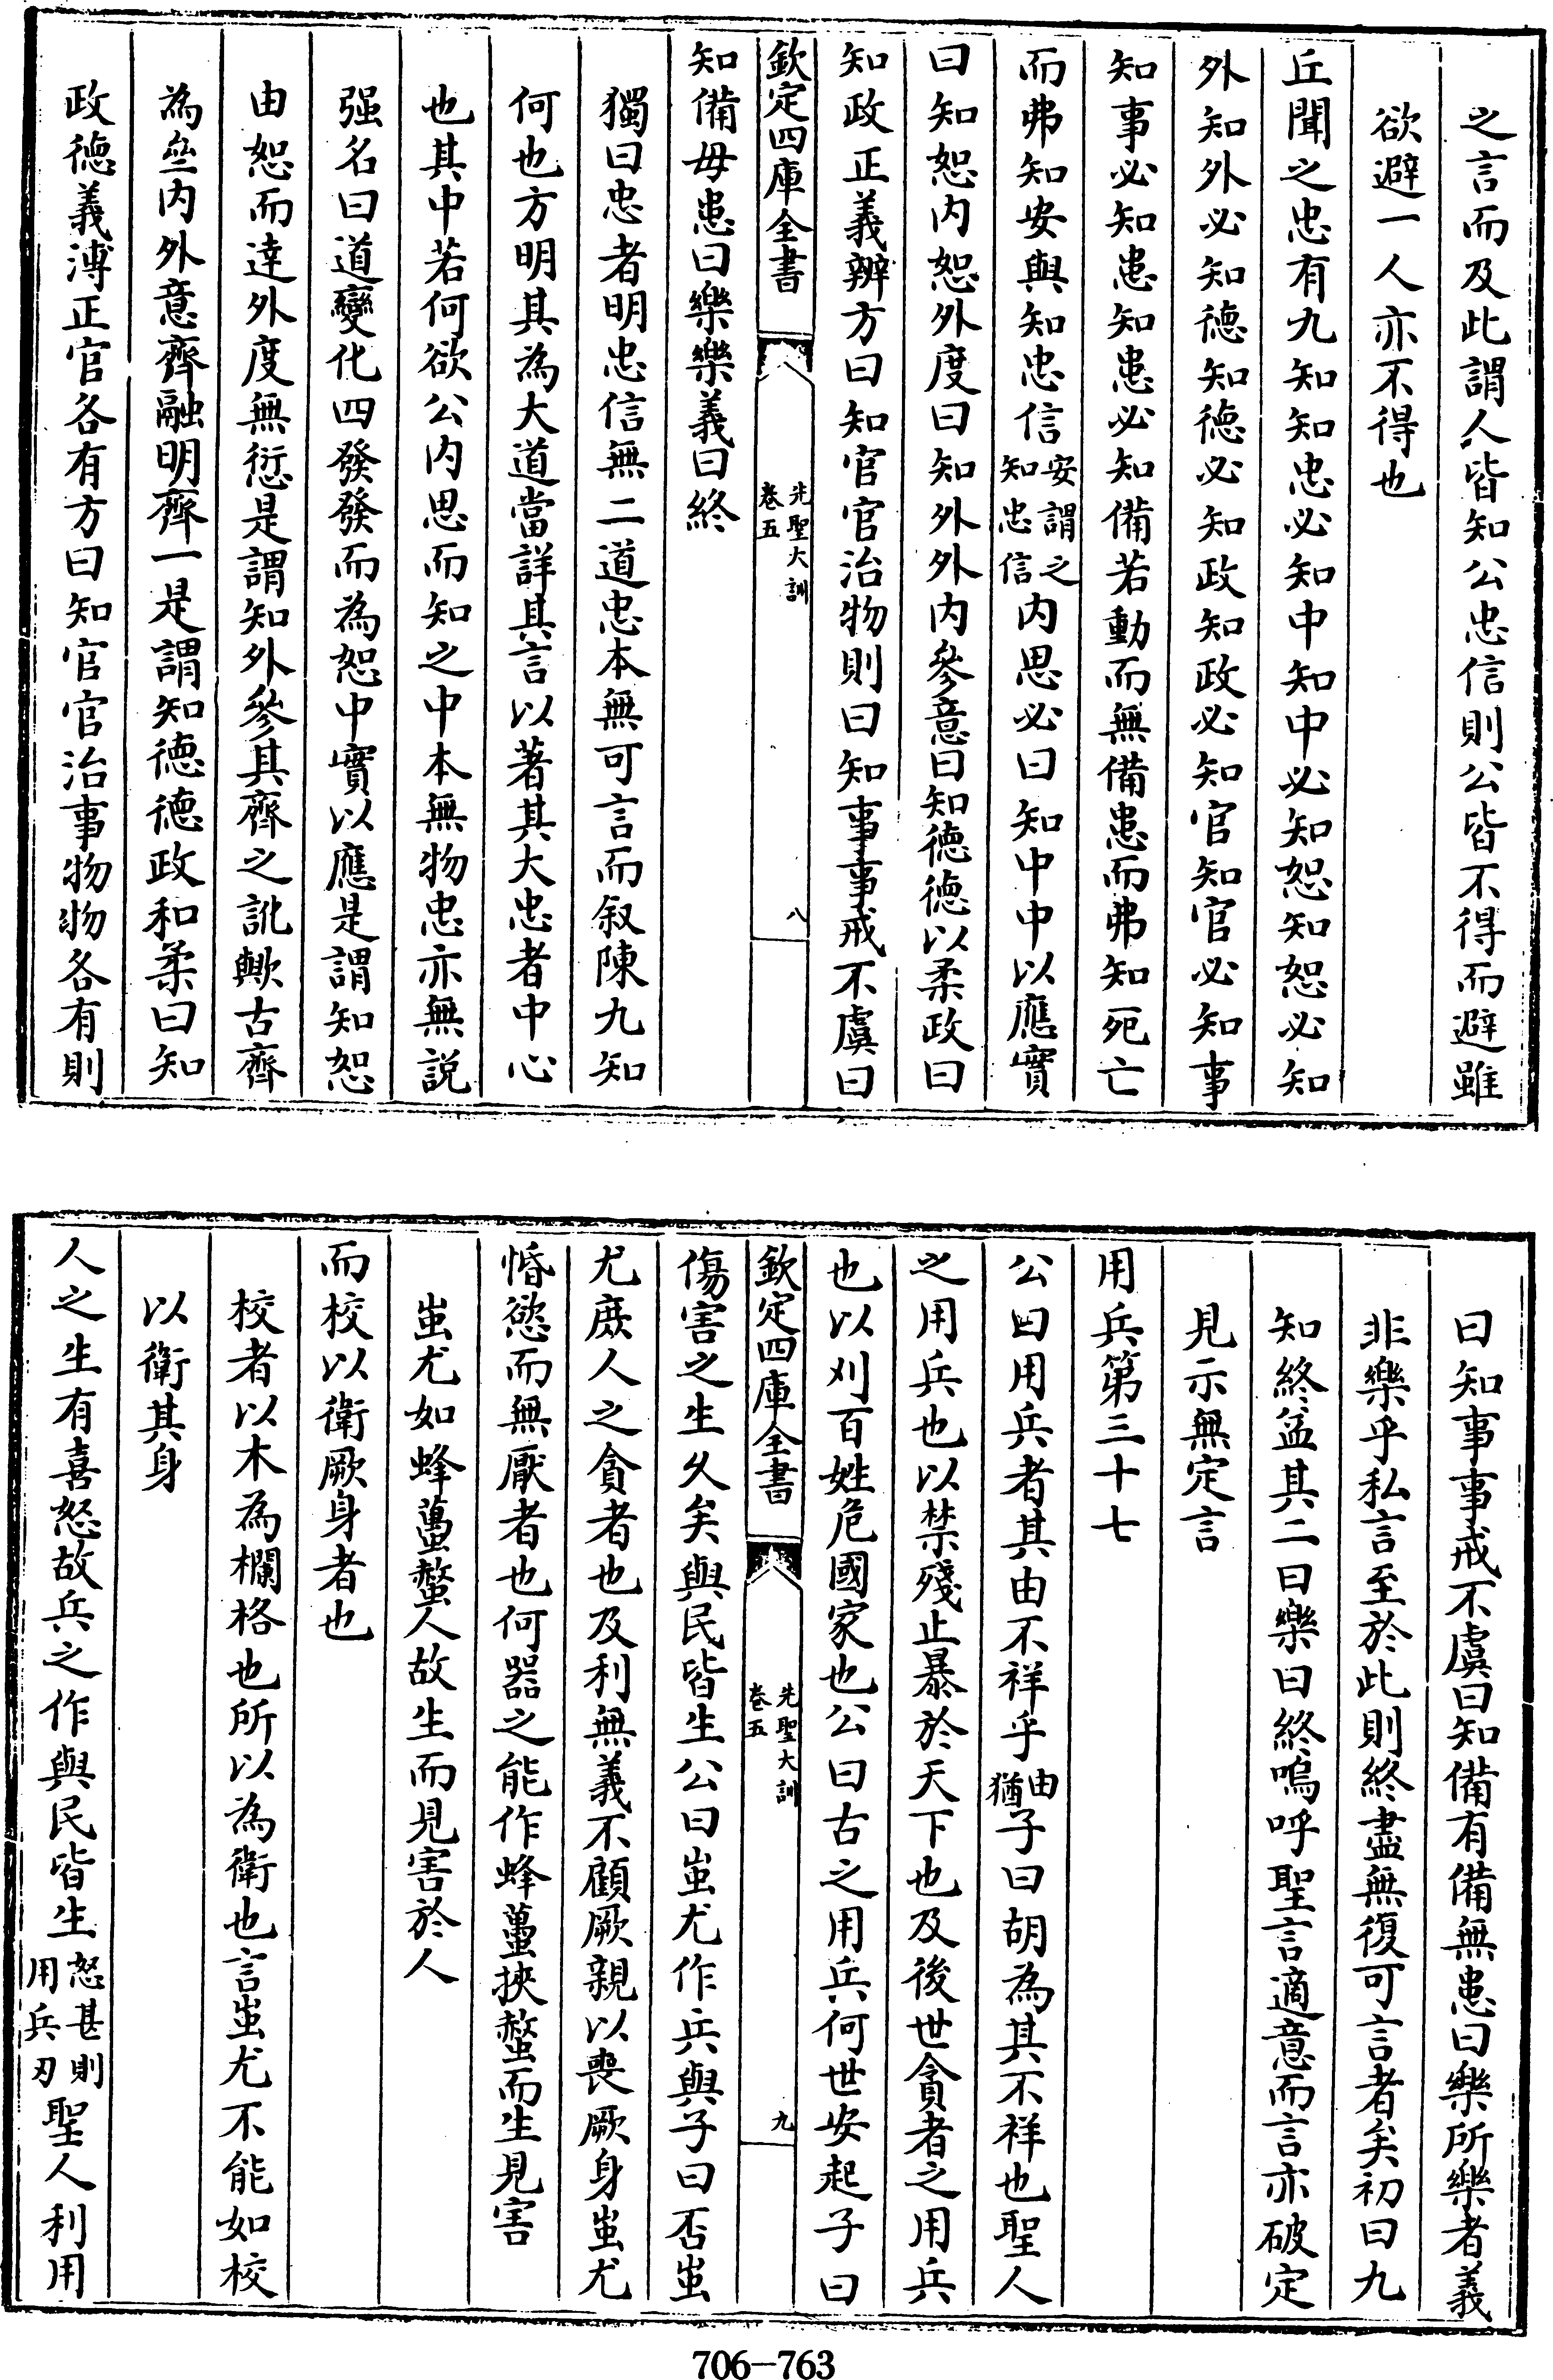 之言而及此謂人皆知公忠信則公皆不得而避雖
欲避一人亦不得也
丘聞之忠有九知知忠必知中知中必知恕知恕必知
外知外必知德知德必知政知政必知官知官必知事
知事必知患知患必知備若動而無備患而弗知死亡
而弗知安與知忠信安謂之知忠信内思必曰知中中以應實
曰知恕内恕外度曰知外外内參意曰知德德以柔政曰
知政正義辨方曰知官官治物則曰知事事戒不虞曰
欽定四庫全書 先聖大訓 卷五 八
知備毋患曰樂樂義曰終
獨曰忠者明忠信無二道忠本無可言而叙陳九知
何也方明其為大道當詳其言以著其大忠者中心
也其中若何欲公内思而知之中本無物忠亦無説
强名曰道變化四發發而為恕中實以應是謂知恕
由恕而達外度無愆是謂知外參其齊之訛歟古齊
為亝内外意齊融明齊一是謂知德德政和柔曰知
政德義溥正官各有方曰知官官治事物物各有則
曰知事事戒不虞曰知備有備無患曰樂所樂者義
非樂乎私言至於此則終盡無復可言者矣初曰九
知終益其二曰樂曰終嗚呼聖言適意而言亦破定
見示無定言
用兵第三十七
公曰用兵者其由不祥乎由猶子曰胡為其不祥也聖人
之用兵也以禁殘止暴於天下也及後世貪者之用兵
也以刈百姓危國家也公曰古之用兵何世安起子曰
欽定四庫全書 先聖大訓 卷五 九
傷害之生久矣與民皆生公曰蚩尤作兵與子曰否蚩
尤庶人之貪者也及利無義不顧厥親以喪厥身蚩尤
惛慾而無厭者也何器之能作蜂蠆挾螫而生見害
蚩尤如蜂蠆螫人故生而見害於人
而校以衛厥身者也
校者以木為欄格也所以為衛也言蚩尤不能如校
以衛其身
人之生有喜怒故兵之作與民皆生怒甚則用兵刃聖人利用
706-763